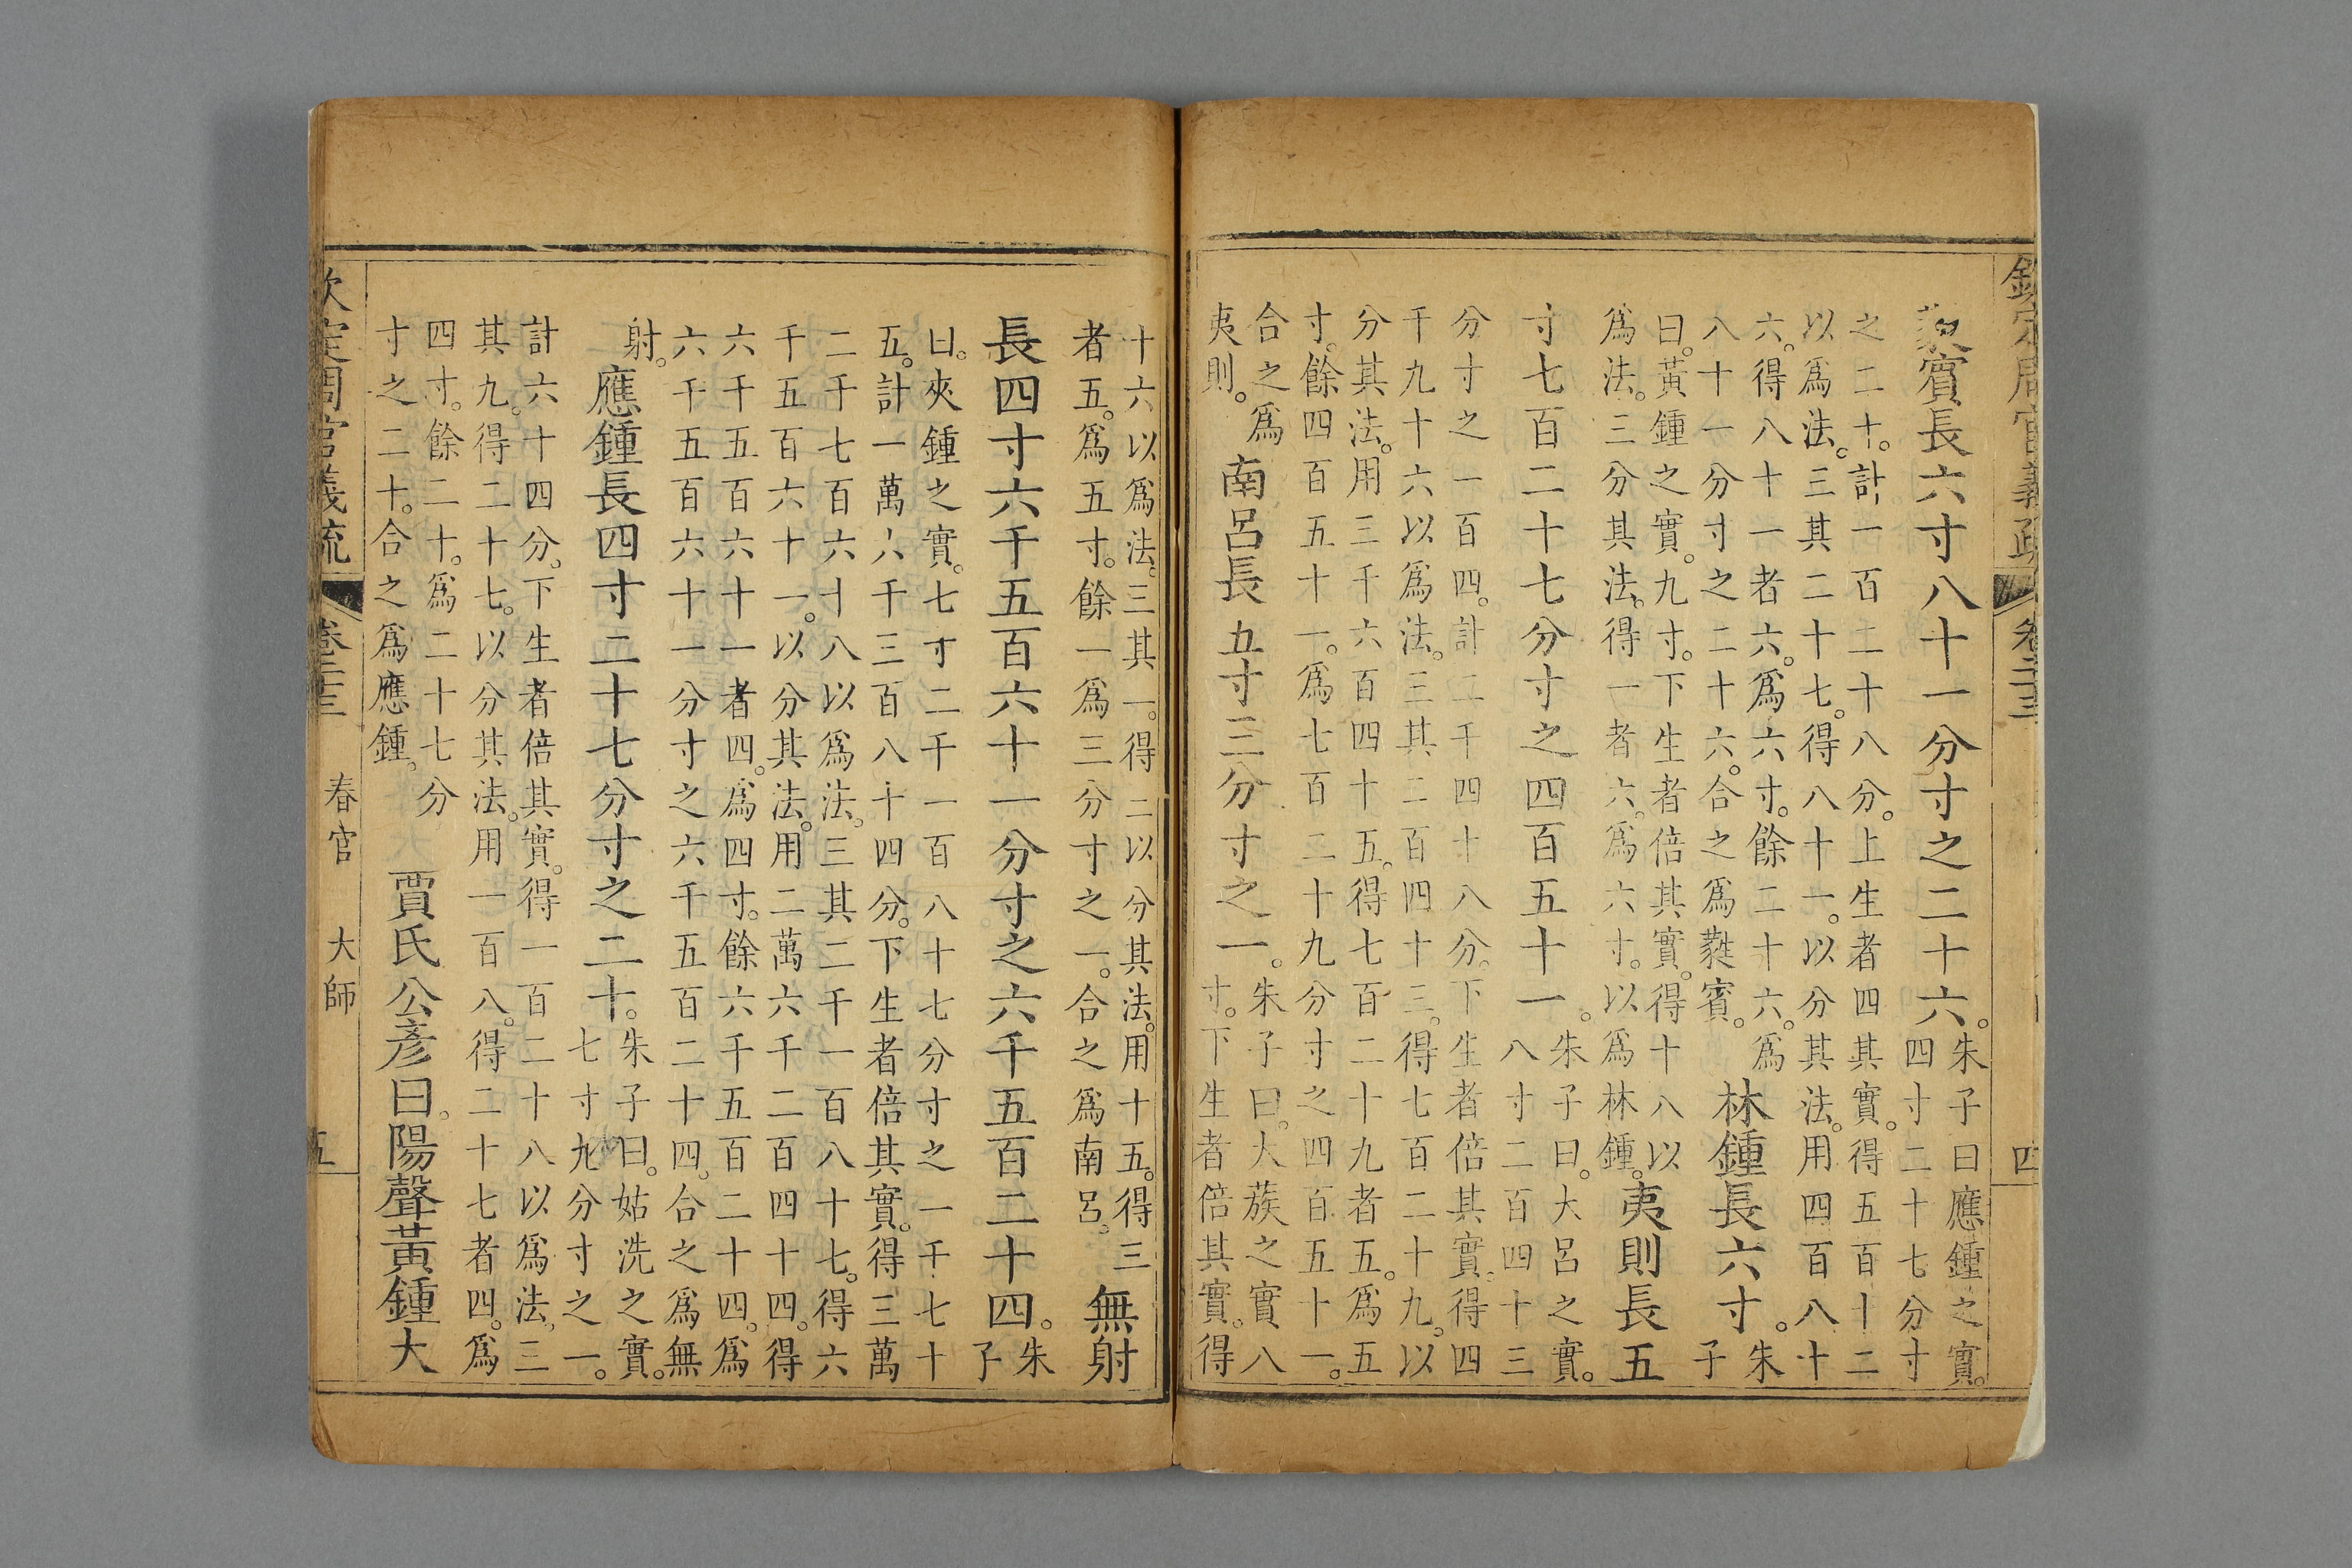 欽定周官義疏 卷二十三 四
蕤賓長六寸八十一分寸之二十六。朱子曰應鍾之實。
四寸二十七分寸
之二十。計一百二十八分。上生者四其實。得五百十二
以爲法。三其二十七。得八十一。以分其法。用四百八十
六。得八十一者六。爲六寸。餘二十六。爲
八十一分寸之二十六。合之爲蕤賓。林鍾長六寸。朱
子
曰。黃鍾之實。九寸。下生者倍其實。得十八以
爲法。三分其法。得一者六。爲六寸。以爲林鍾。夷則長五
寸七百二十七分寸之四百五十一。朱子曰。大呂之實。
八寸二百四十三
分寸之一百四。計二千四十八分。下生者倍其實。得四
千九十六以爲法。三其二百四十三。得七百二十九。以
分其法。用三千六百四十五。得七百二十九者五。爲五
寸。餘四百五十一。爲七百二十九分寸之四百五十一。
合之爲
夷則。南呂長五寸三分寸之一。朱子曰。大蔟之實八
寸。下生者倍其實。得
十六以爲法。三其一。得二以分其法。用十五。得三
者五。爲五寸。餘一爲三分寸之一。合之爲南呂。無射
長四寸六千五百六十一分寸之六千五百二十四。朱
子
曰。夾鍾之實。七寸二千一百八十七分寸之一千七十
五。計一萬六千三百八十四分。下生者倍其實。得三萬
二千七百六十八以爲法。三其二千一百八十七。得六
千五百六十一。以分其法。用二萬六千二百四十四。得
六千五百六十一者四。爲四寸。餘六千五百二十四。爲
六千五百六十一分寸之六千五百二十四。合之爲無
射。應鍾長四寸二十七分寸之二十。朱子曰。姑洗之實。
七寸九分寸之一。
計六十四分。下生者倍其實。得一百二十八以爲法。三
其九。得二十七。以分其法。用一百八。得二十七者四。爲
四寸。餘二十。爲二十七分
寸之二十。合之爲應鍾。賈氏公彥曰。陽聲黃鍾大
欽定周官義疏 卷二十三 春官 大師 五